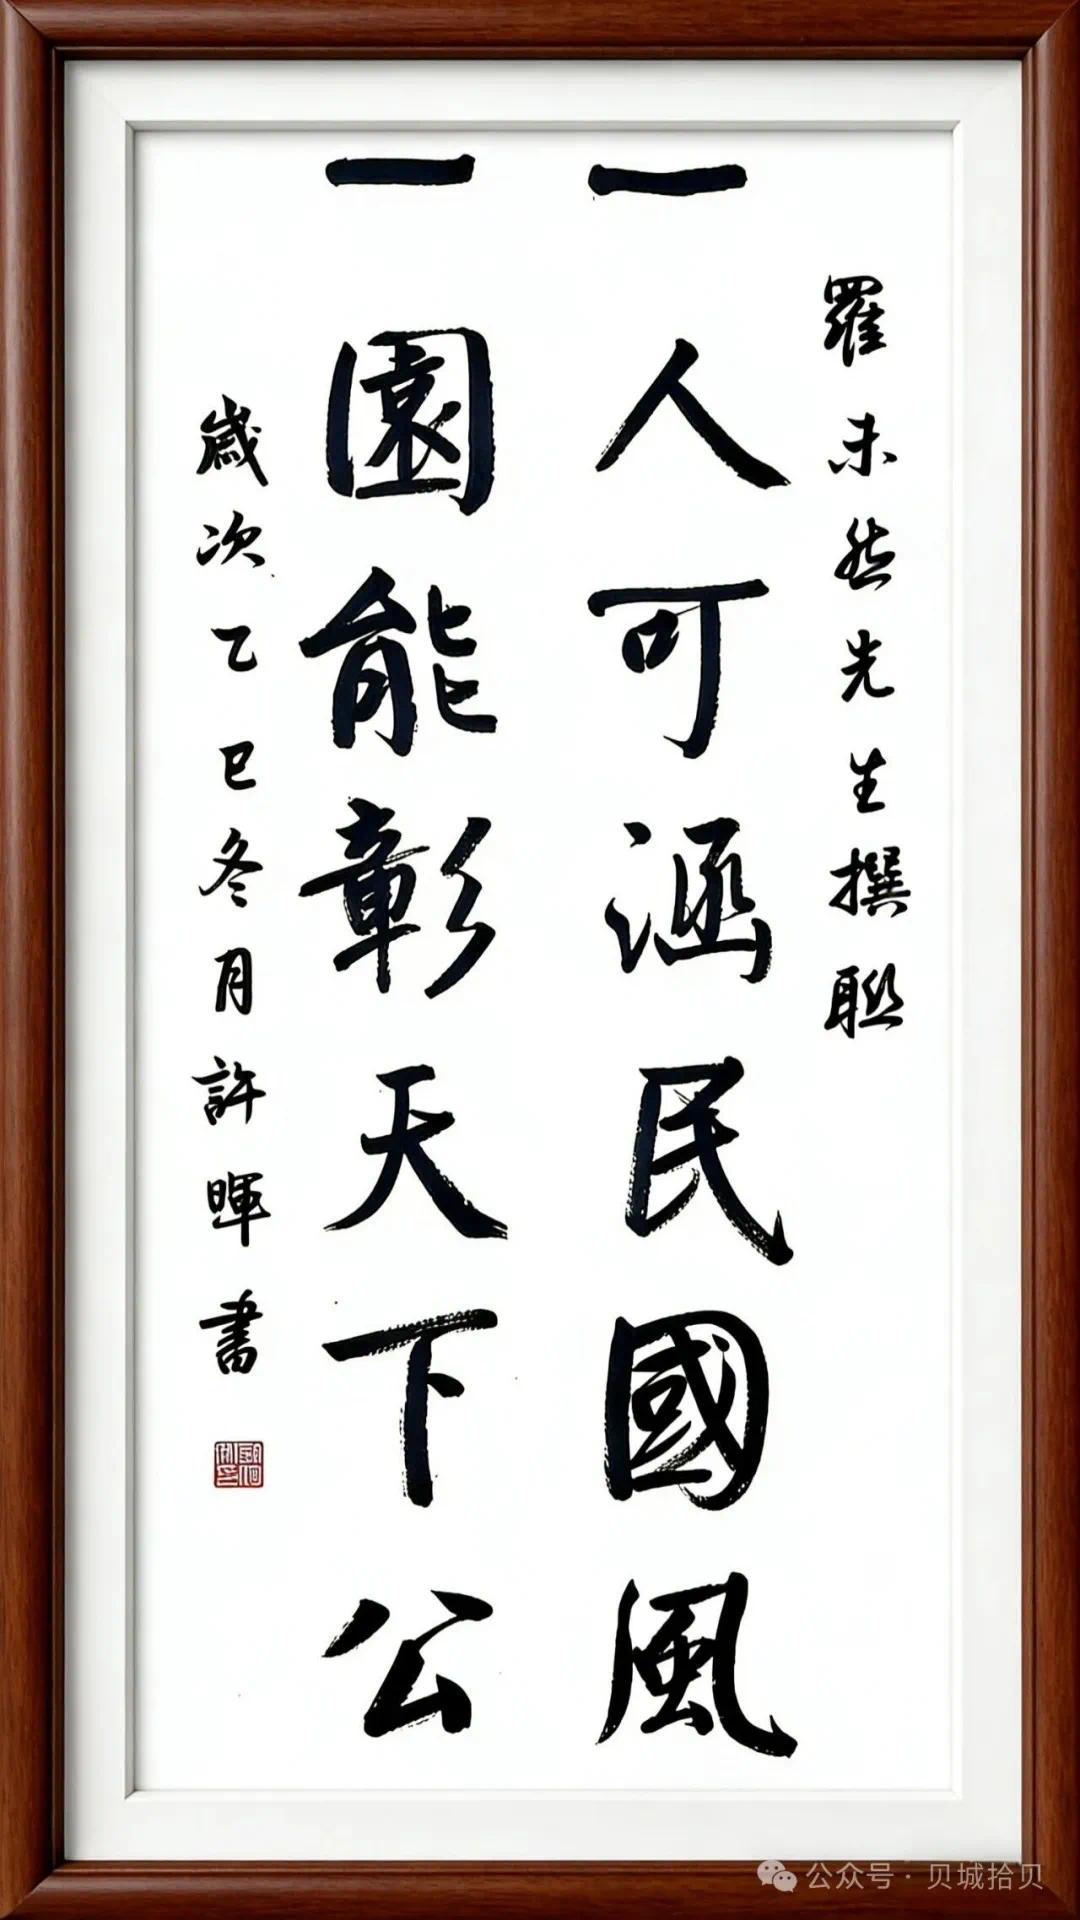 羅未然先生撰聯
一人可涵民國風
一園能彰天下公
歲次乙巳冬月許暉書
公众号·贝城拾贝